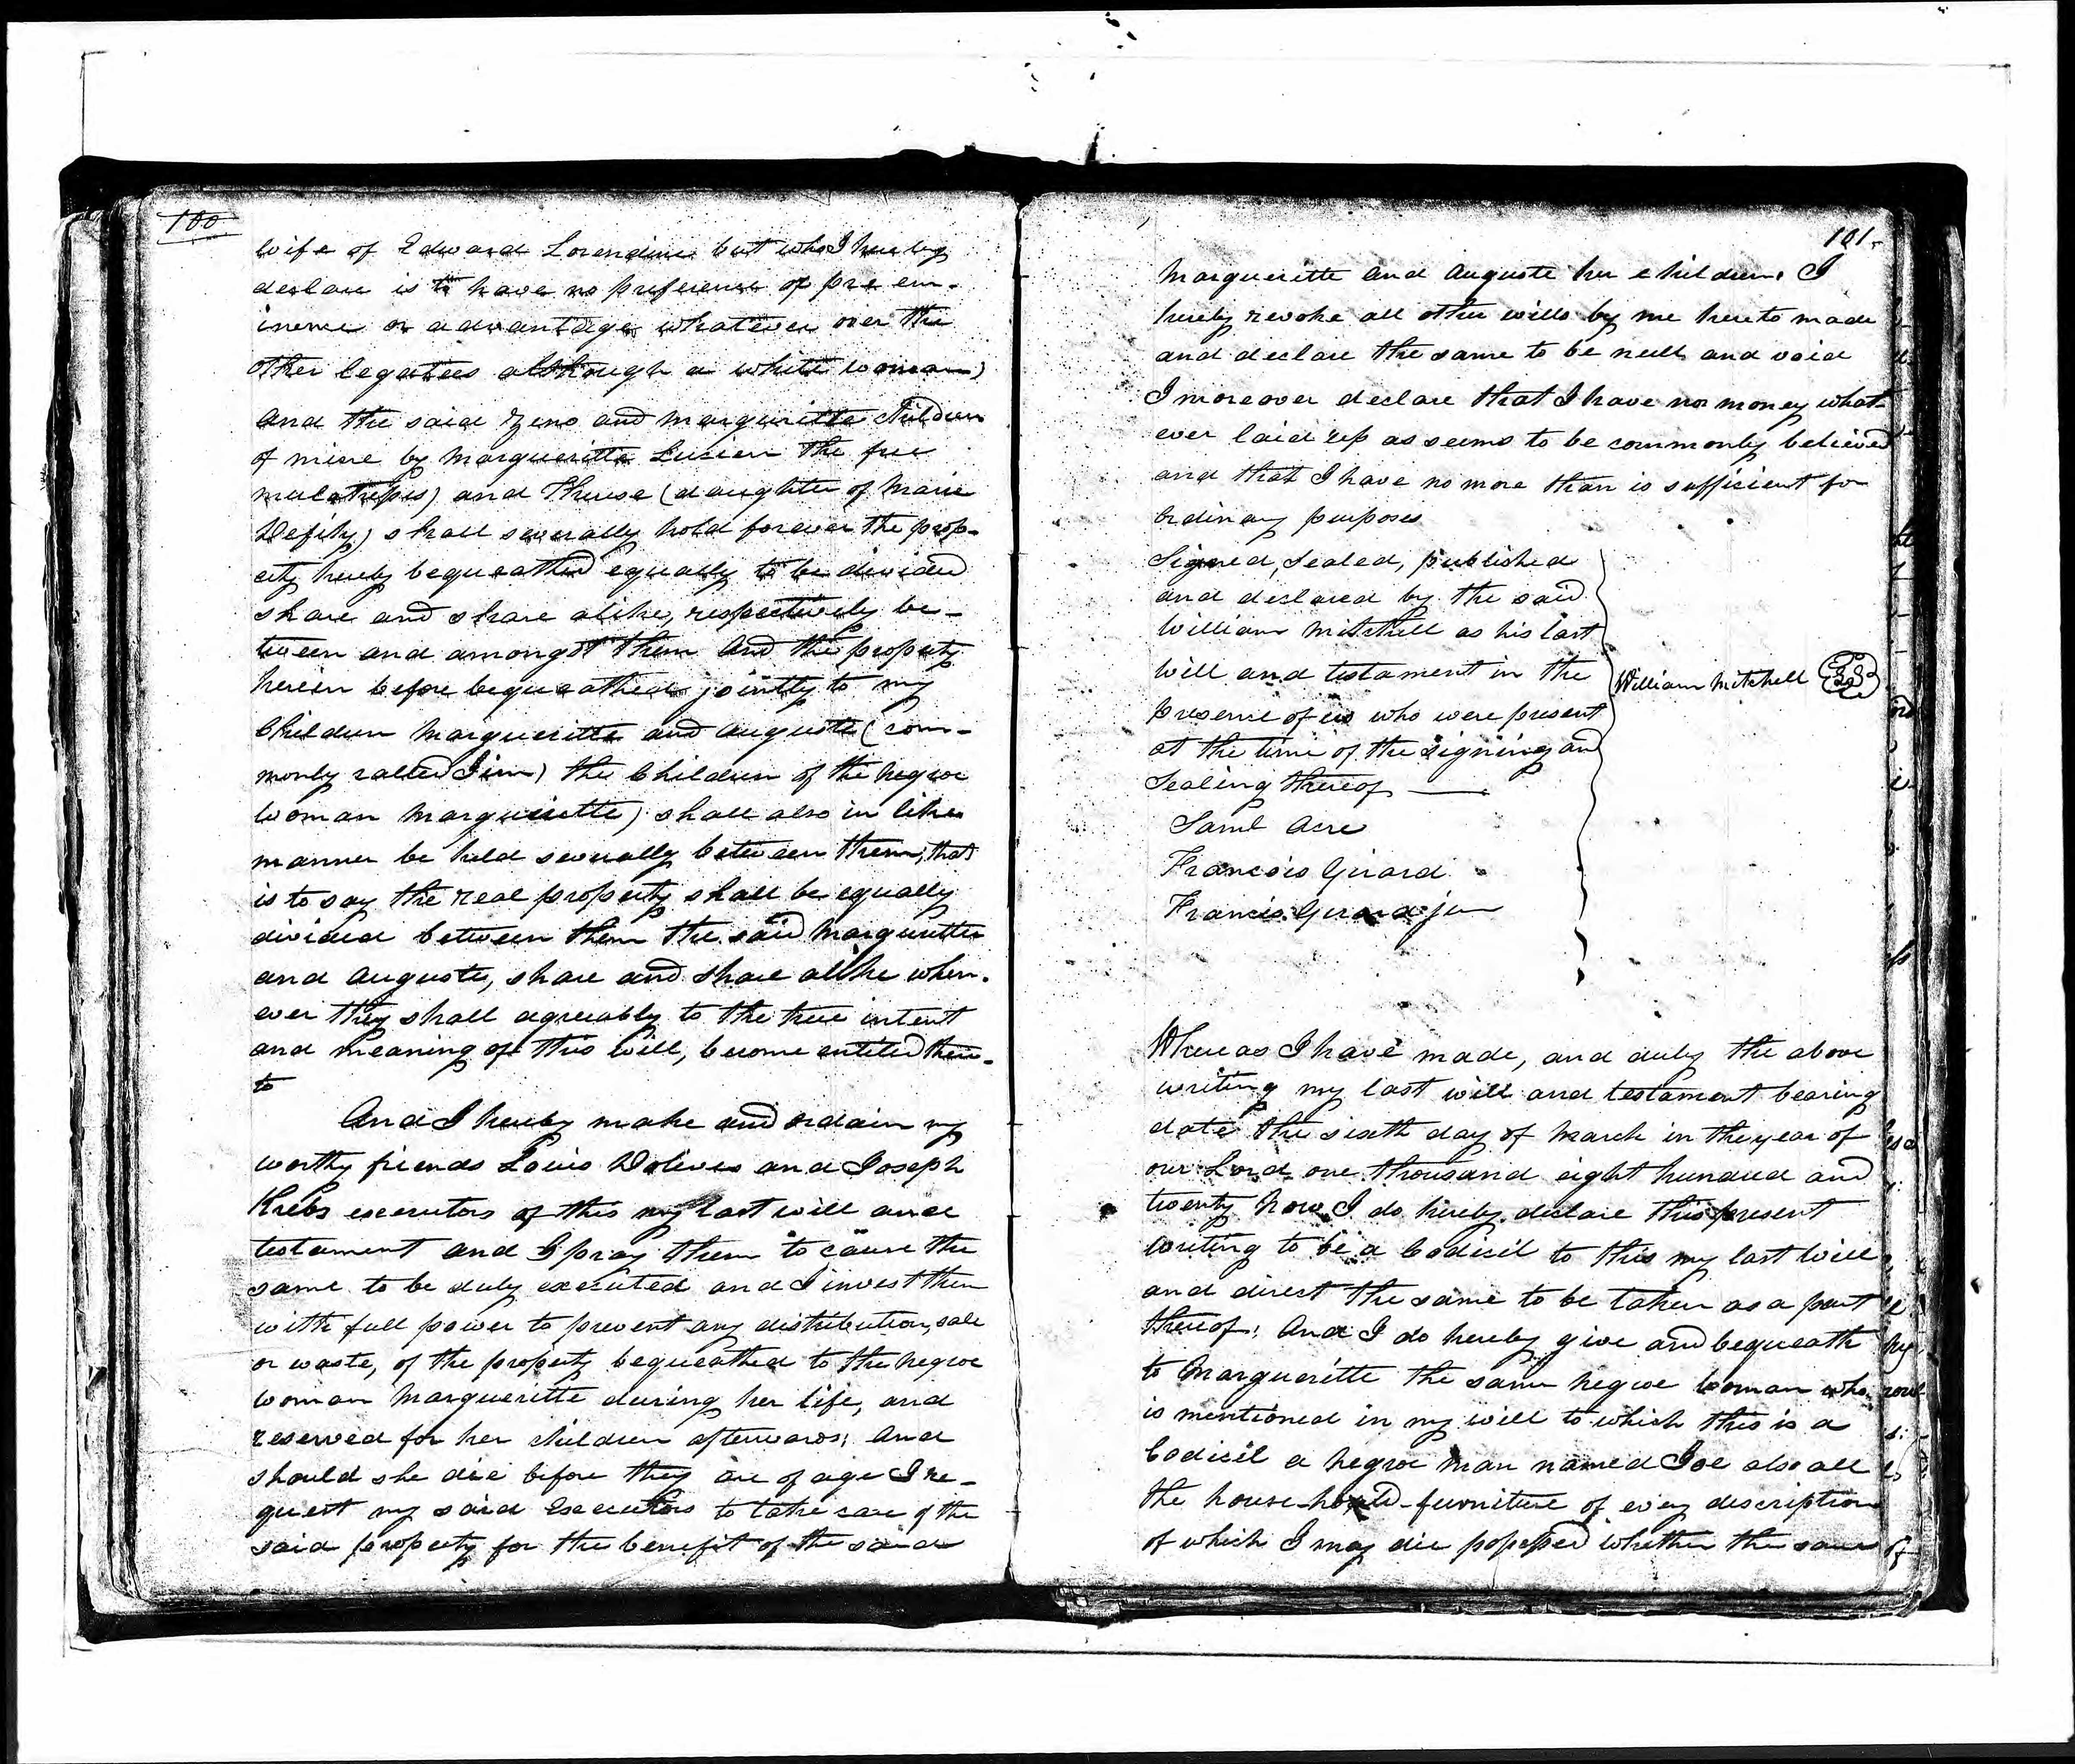 100
wife of Edward Lorendine but who I hereby
declare is to have no preference of pre em-
inence or advantage whatever over the
other legatees although a white woman)
and the said Zeno and Margueritte Children
of mine by Margueritte Lusien the free
mulatress) and Therese (daughter of Marie
) shall severally hold forever the prop-
erty hereby bequeathed equally to be divided
share and share alike, respectively be-
tween and amongst them And the property
herein before bequeathed jointly to my
Children Margueritte and Auguste (com-
monly called Jim) the Children of the negroe
woman Margueritte) shall also in like
manner be held severally between them, that
is to say the real property shall be equally
divided between them the said Margueritte
and Auguste, share and share alike when-
ever they shall agreeably to the true intent
and meaning of this will, become entitled there-
to
And I hereby make and ordain my
worthy friends Louis Dolives and Joseph
Krebs executors of this my last will and
testament and I pray them to cause the
same to be duly executed and I invest them
with full power to prevent any distribution, sale
or waste, of the property bequeathed to the negroe
woman Margueritte during her life, and
reserved for her children afterwards; And
should she die before they are of age I re-
quest my said Executors to take care of the
said property for the benefit of the said
101.
Margueritte and Auguste her children. I
hereby revoke all other wills by me hereto made
and declare the same to be null and void
I moreover declare that I have no money what-
ever laid up as seems to be commonly believed
and that I have no more than is sufficient for
ordinary purposes
Signed, Sealed, published
and declared by the said
William Mitchell as his last
will and testament in the
William Mitchell
presence of us who were present
at the time of the signing and
Sealing thereof
Saml Acre
Francois Girard
Francis Girard jun
Whereas I have made, and duly the above
writing my last will and testament bearing
date the sixth day of March in the year of
our Lord one thousand eight hundred and
twenty Now I do hereby declare this present
writing to be a Codicil to this my last will
and direct the same to be taken as a part
thereof; And I do hereby give and bequeath
to Margueritte the same negroe woman who
is mentioned in my will to which this is a
Codicil a negroe man named Joe also all
the house-hold-furniture of every description
of which I may die possessed whether the same